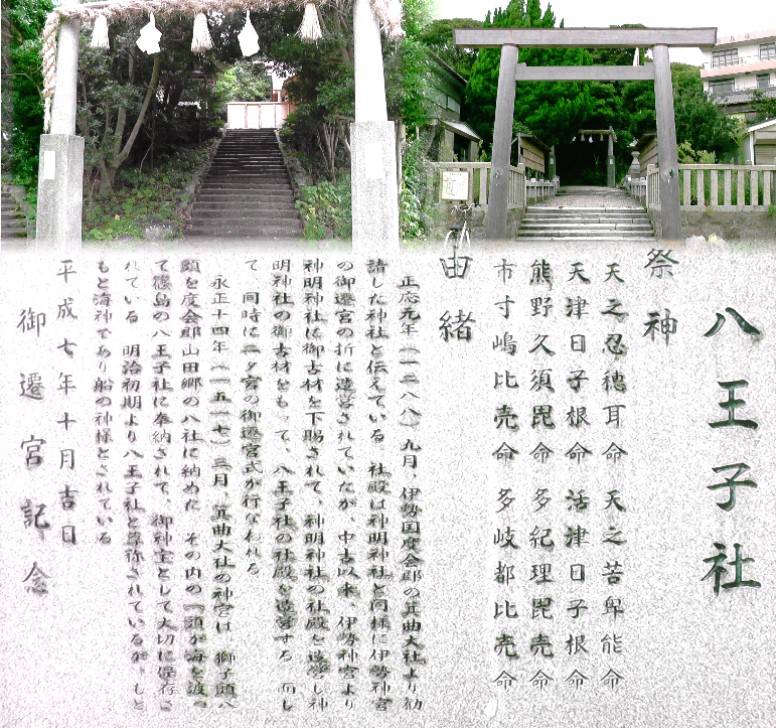 八王子社
祭神
天之忍穂耳命 天之菩卑能命
天津日子根命 活津日子根命
熊野久須毘命 多紀理毘売命
市寸嶋比売命 多岐都比売命
由緒
正応元年(一二八八)九月、伊勢国度会郡の箕曲大社より勧
請した神社と伝えている。社殿は神明神社と同様に伊勢神宮
の御遷宮の折に造営されていたが、中古以来、伊勢神宮より
神明神社に御古材を下賜されて、神明神社の社殿を造営し神
明神社の御古材をもって、八王子社の社殿を造営する 而し
て、同時に二タ宮の御遷宮式が行なわれる
永正十四年(一五一七)三月、箕曲大社の神宮は 獅子頭八
頭を度会郡山田郷の八社に納めた その内の一頭が海を渡っ
て篠島の八王子社に奉納されて、御神宝として大切に保存さ
れている 明治初期より八王子社と尊称されているが もと
もと海神であり船の神様とされている
平成七年十月吉日
御遷宮記念